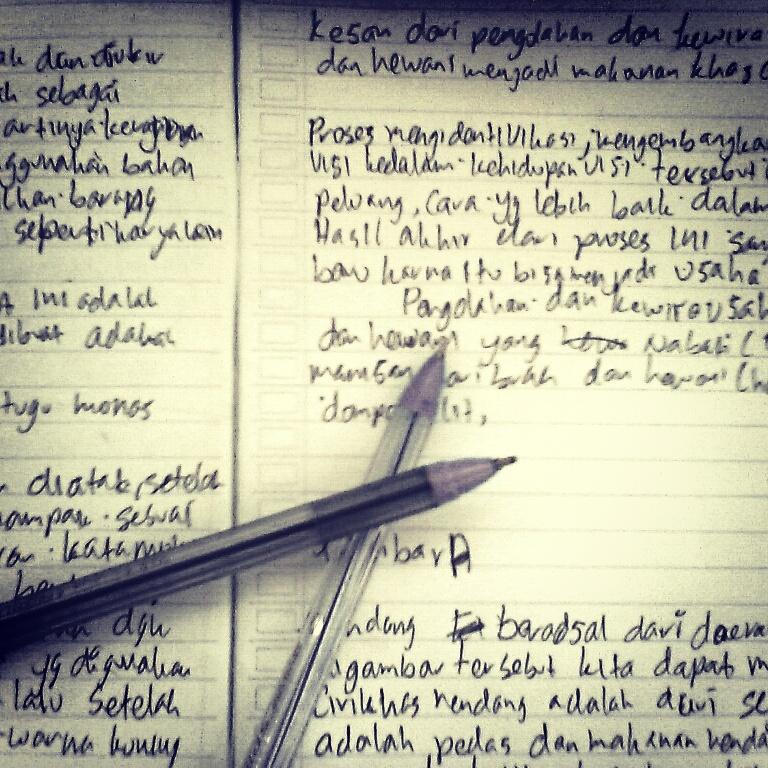 ah dan diukir
ah sebagai
artinya kerajinan
nggunakan bahan
lkan barang
seperti karya lain
ini adalah
dibuat adalah
tugu monas
diatak, setelah
sebuai
kata
dgn
yg digunakan
lalu setelah
warna kuning
Kesan dari pengolahan dan kewira
dan hewani menjadi makanan khas
Proses mengidentivikasi, mengembangka
Visi kedalam kehidupan Visi tersebut
Peluang, Cara yg lebih baik dalam
Hasil akhir dari proses ini
baru karna itu bisa menjadi usaha
Pengolahan dan kewirausah
dan hewani yang Nabati
dan hewani
Gambar A
Rendang beradsal dari daera
gambar tersebut kita dapat m
Cirikhas rendang adalah dari se
adalah pedas dan makanan renda